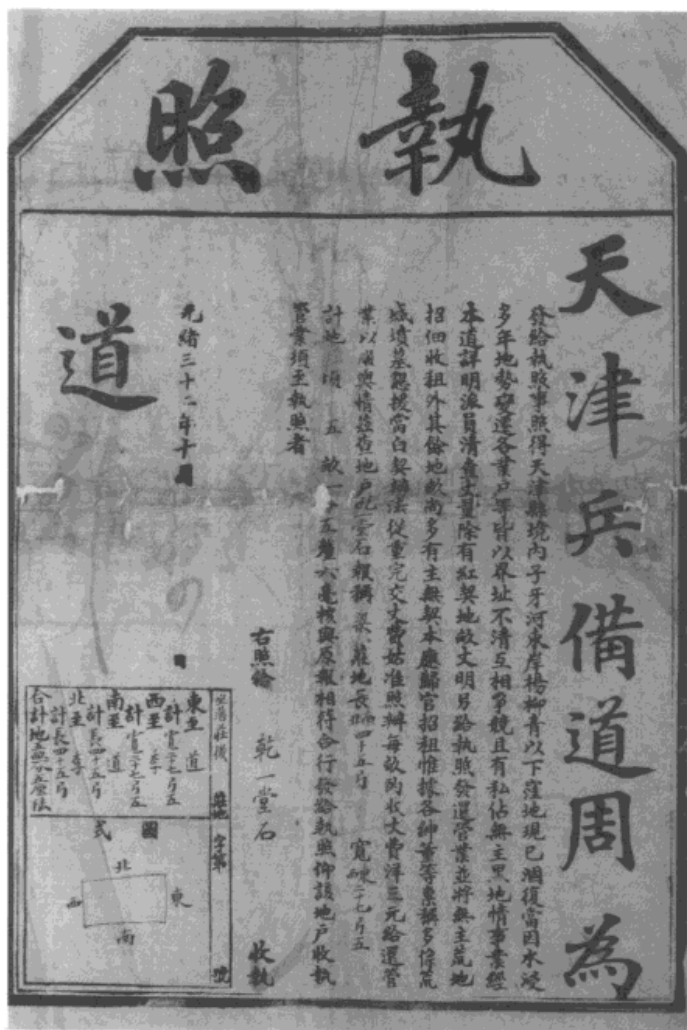 執照
天津兵備道周 為
發給執照事照得天津縣境內子牙河東岸楊柳青以下窪地現已涸復當因水浸
多年地勢變遷各業戶等皆以界址不清互相爭競且有私佔無主黑地情事業經
本道詳明派員清查丈量除有紅契地畝丈明另給執照發還營業並將無主荒地
招佃收租外其餘地畝尚多有主無契本應歸官招租惟據各紳董等稟稱多係荒
墳墓懇援當白契辦法從重完交丈費姑准照辦每畝酌收丈費洋三元給還管
業以順輿情茲查地戶乾堂石報稱 莊地長四十五弓 寬東西二十七弓五
計地 頃 五 畝一分五釐六毫核與原報相符合行發給執照仰該地戶收執
管業須至執照者
右照給 乾一堂石 收執
光緒三十二年十月 日
道
坐落莊後 莊地 字第 號
東至 道
計寬二十七弓五
西至
計寬二十七弓五
南至 道
計長四十五弓
北至
計長四十五弓
合計地五畝一分五厘
圖式
北
東
西
南